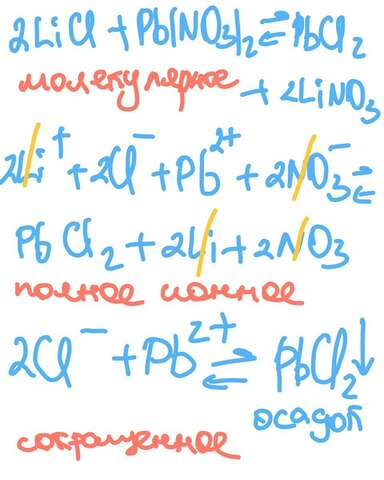 2LiCl + Pb(NO3)2 ⇄ PbCl2
молекулярное + 2LiNO3
2Li⁺ + 2Cl⁻ + Pb²⁺ + 2NO3⁻ ⇄
PbCl2 + 2Li + 2NO3
полное ионное
2Cl⁻ + Pb²⁺ ⇄ PbCl2↓
осадок
сокращенное